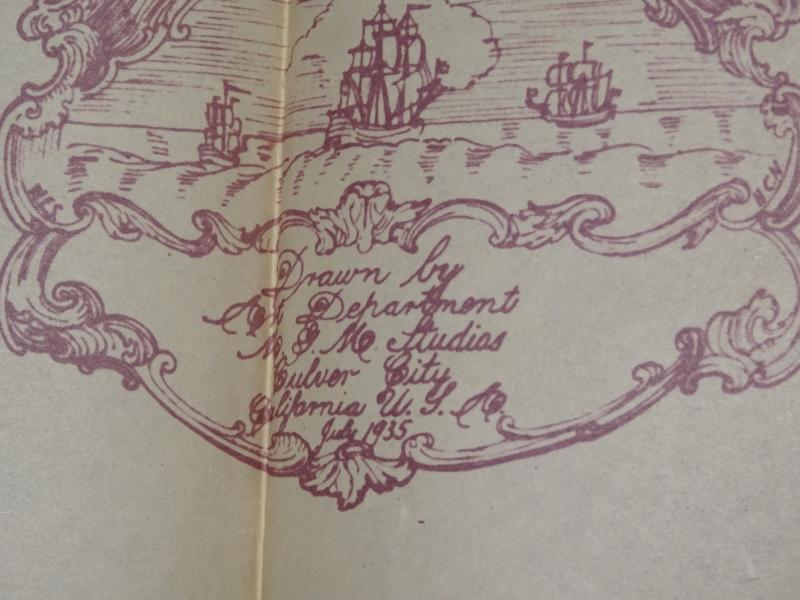 Drawn by
Art Department
M. G. M. Studios
Culver City
California U. S. A.
July 1935